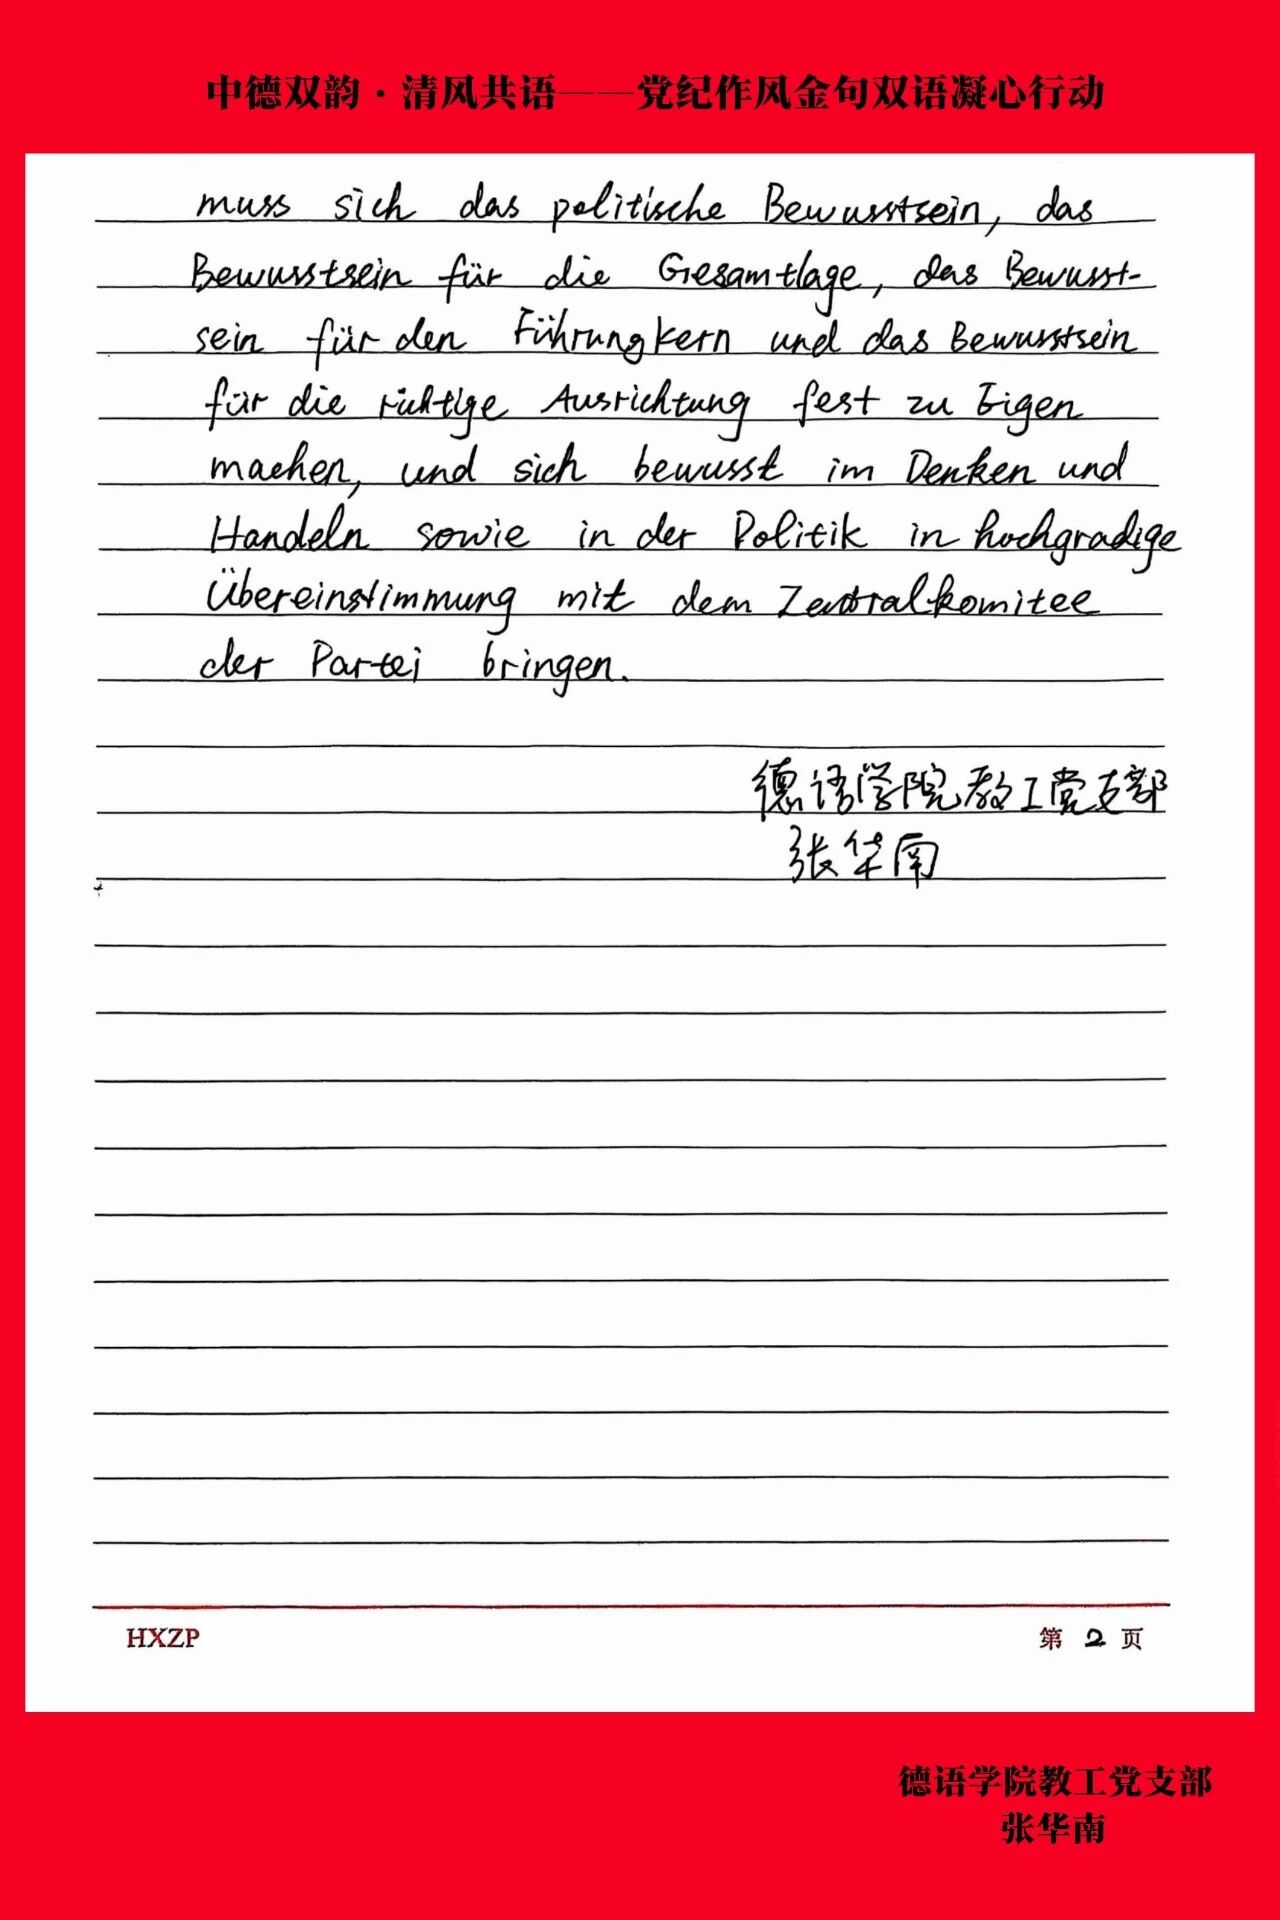 中德双韵·清风共语——党纪作风金句双语凝心行动
muss sich das politische Bewusstsein, das
Bewusstsein für die Gesamtlage, das Bewusst-
sein für den Führungkern und das Bewusstsein
für die richtige Ausrichtung fest zu Eigen
machen, und sich bewusst im Denken und
Handeln sowie in der Politik in hochgradige
Übereinstimmung mit dem Zentralkomitee
der Partei bringen.
德语学院教工党支部
张华南
HXZP 第 2 页
德语学院教工党支部
张华南